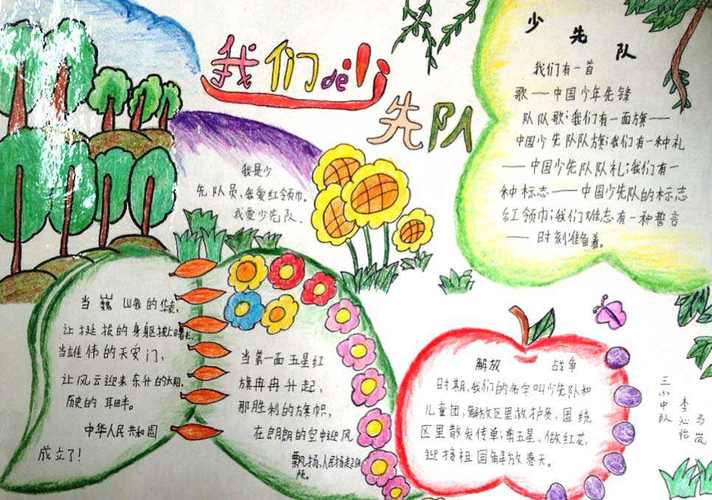 我们de少
先队
少先队
我们有一首
歌——中国少年先锋
队队歌;我们有一面旗——
中国少先队队旗;我们有一种礼
——中国少先队队礼;我们有一
种标志——中国少先队的标志
红领巾;我们有一种誓言
——时刻准备着。
我是少
先队员,我爱红领巾。
我爱少先队。
当巍山的
让挺拔的身躯披上
当雄伟的天安门,
让风云迎来东升的太阳,
历史的
中华人民共和国
成立了!
当第一面五星红
旗冉冉升起,
那胜利的旗帜,
在朗朗的空中迎风
飘扬,人民
解放战争
时期,我们的名字叫少先队和
儿童团,解放区里放护哭,围绕
区里散发传单;秉五星、做红花,
迎接祖国解放春天。
三小中队
李心怡